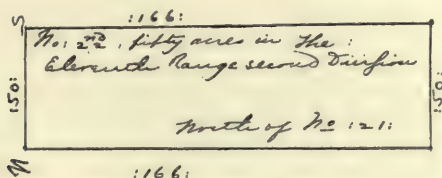 S
:166:
No: 22nd, fifty acres in The:
Eleventh Range second Division
:50:
:50:
North of No :21:
N
:166: